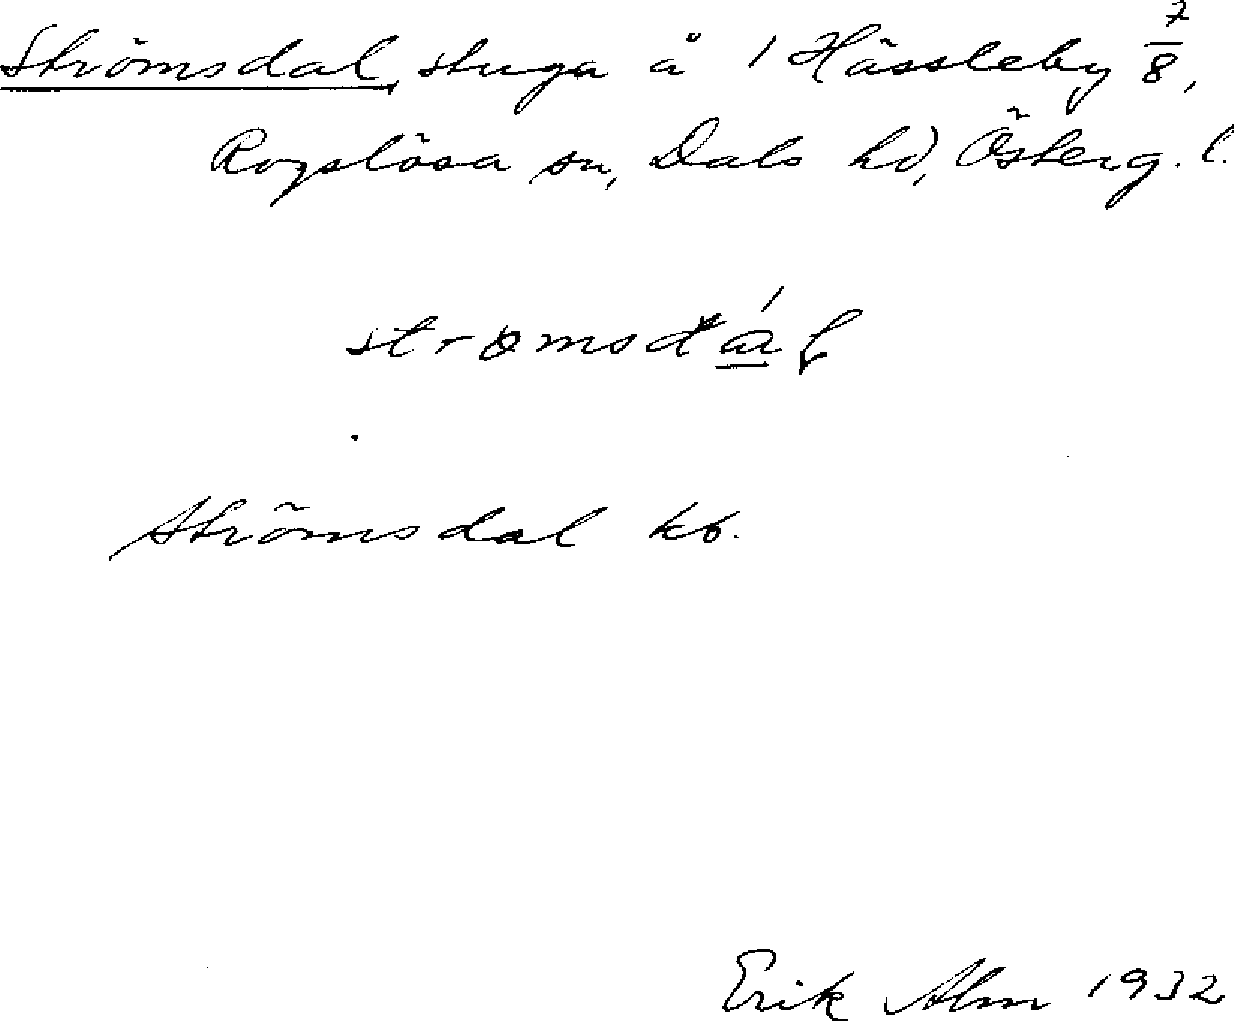 Strömsdal, stuga å 1 Hässleby 7/8,
Rogslösa sn, Dals hd, Österg. l.
Strömsdal kb.
Erik Alm 1932